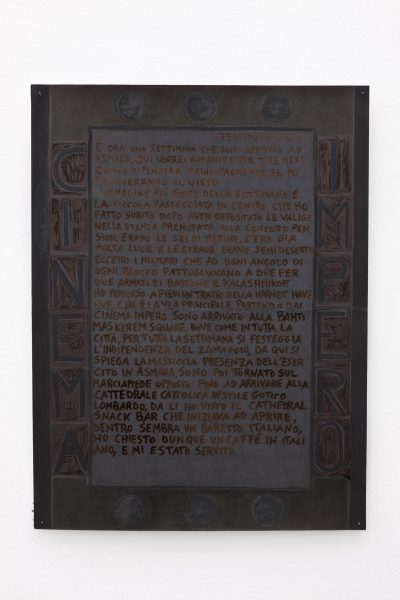 CINEMA
È ORA UNA SETTIMANA CHE SONO ARRIVATO AD
ASMARA, QUI VORREI RIMANERE PER TRE MESI
QUESTO DIPENDERÀ PRINCIPALMENTE SE MI
IL VISTO
L'IMMAGINE PIÙ FORTE DELLA SETTIMANA È
LA PICCOLA PASSEGGIATA IN CENTRO CHE HO
FATTO SUBITO DOPO AVER DEPOSITATO LE VALIGE
NELLA STANZA PRENOTATA ALLA CONCORD PEN
SION. ERANO LE SEI DI MATTINA, C'ERA GIÀ
MOLTA LUCE E LE STRADE ERANO SEMIDESERTE
ECCETTO I MILITARI CHE AD OGNI ANGOLO DI
OGNI BLOCCO PATTUGLIAVANO A DUE PER
DUE ARMATI DI BASTONE E KALASHNIKOF
HO PERCORSO A PIEDI UN TRATTO DELLA HARNET
CHE È LA VIA PRINCIPALE PARTENDO DAL
CINEMA IMPERO SONO ARRIVATO ALLA BAHTI
MESKEREM SQUARE. DOVE COME IN TUTTA LA
CITTÀ, PER TUTTA LA SETTIMANA SI FESTEGGIA
L'INDIPENDENZA DEL 24 MAGGIO, DA QUI SI
SPIEGA LA MASSICCIA PRESENZA DELL'ESER
CITO IN ASMARA SONO POI TORNATO SUL
MARCIAPIEDE OPPOSTO FINO AD ARRIVARE ALLA
CATTEDRALE CATTOLICA IN STILE GOTICO
LOMBARDO, DA LI HO VISTO IL CATHEDRAL
SNACK BAR CHE INIZIAVA AD APRIRE,
DENTRO SEMBRA UN BARETTO ITALIANO,
HO CHIESTO DUNQUE UN CAFFÈ IN ITALI
ANO, E MI È STATO SERVITO.
IMPERO